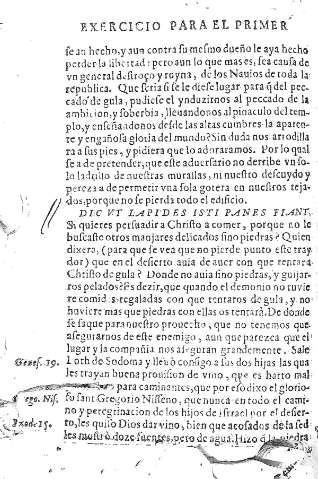 EXERCICIO PARA EL PRIMER
se an hecho, y aun contra su mesmo dueño le aya hecho
perder la libertad: pero aun lo que mas es, sea causa de
vn general destroço y royna, de los Nauios de toda la
republica. Que seria si se le diese lugar para q̃ del pec-
cado de gula, pudiese el ynduzirnos al peccado de la
ambicion, y soberbia, lleuandonos al pinaculo del tem-
plo, y enseñadonos desde las altas cumbres la aparen-
te y engañosa gloria del mundo? Sin duda nos arrodilla
ra a sus pies, y pidiera que lo adoraramos. Por lo qual
se a de pretender, que este aduersario no derribe vn so-
lo ladrillo de nuestras murallas, ni nuestro descuydo y
pereza a de permetir vna sola gotera en nuestros teja-
dos, porque no se pierda todo el edificio.
DIC VT LAPIDES ISTI PANES FIANT.
Si quieres persuadir a Christo a comer, porque no le
buscaste otros manjares delicados sino piedras? Quien
dixera, (para que se vea que no pierde punto este tray
dor) que en el desierto auia de auer con que tentara a
Christo de gula? Donde no auia sino piedras, y guijar-
ros pelados? Es dezir, que quando el demonio no tuvie
re comidas regaladas con que tentaros de gula, y no
huviere mas que piedras con ellas os tentarà. De donde
se saque para nuestro prouecho, que no tenemos que
asegurarnos de este enemigo, aun que parezca que el
lugar y la compañia nos aseguran grandemente. Sale
Genes. 19. Loth de Sodoma y lleuò consigo a sus dos hijas las qua
les trayan buena prouision de vino, que es harto mal
para caminantes, que por eso dixo el glorio-
Greg. Nis. so sant Gregorio Nisseno, que nunca en todo el cami-
no y peregrinacion de los hijos de Israel por el desier-
Exod. 15. to, les quiso Dios dar vino, bien que acosados de la sed
les mostrò doze fuentes, pero de agua. Hizo q̃ la piedra